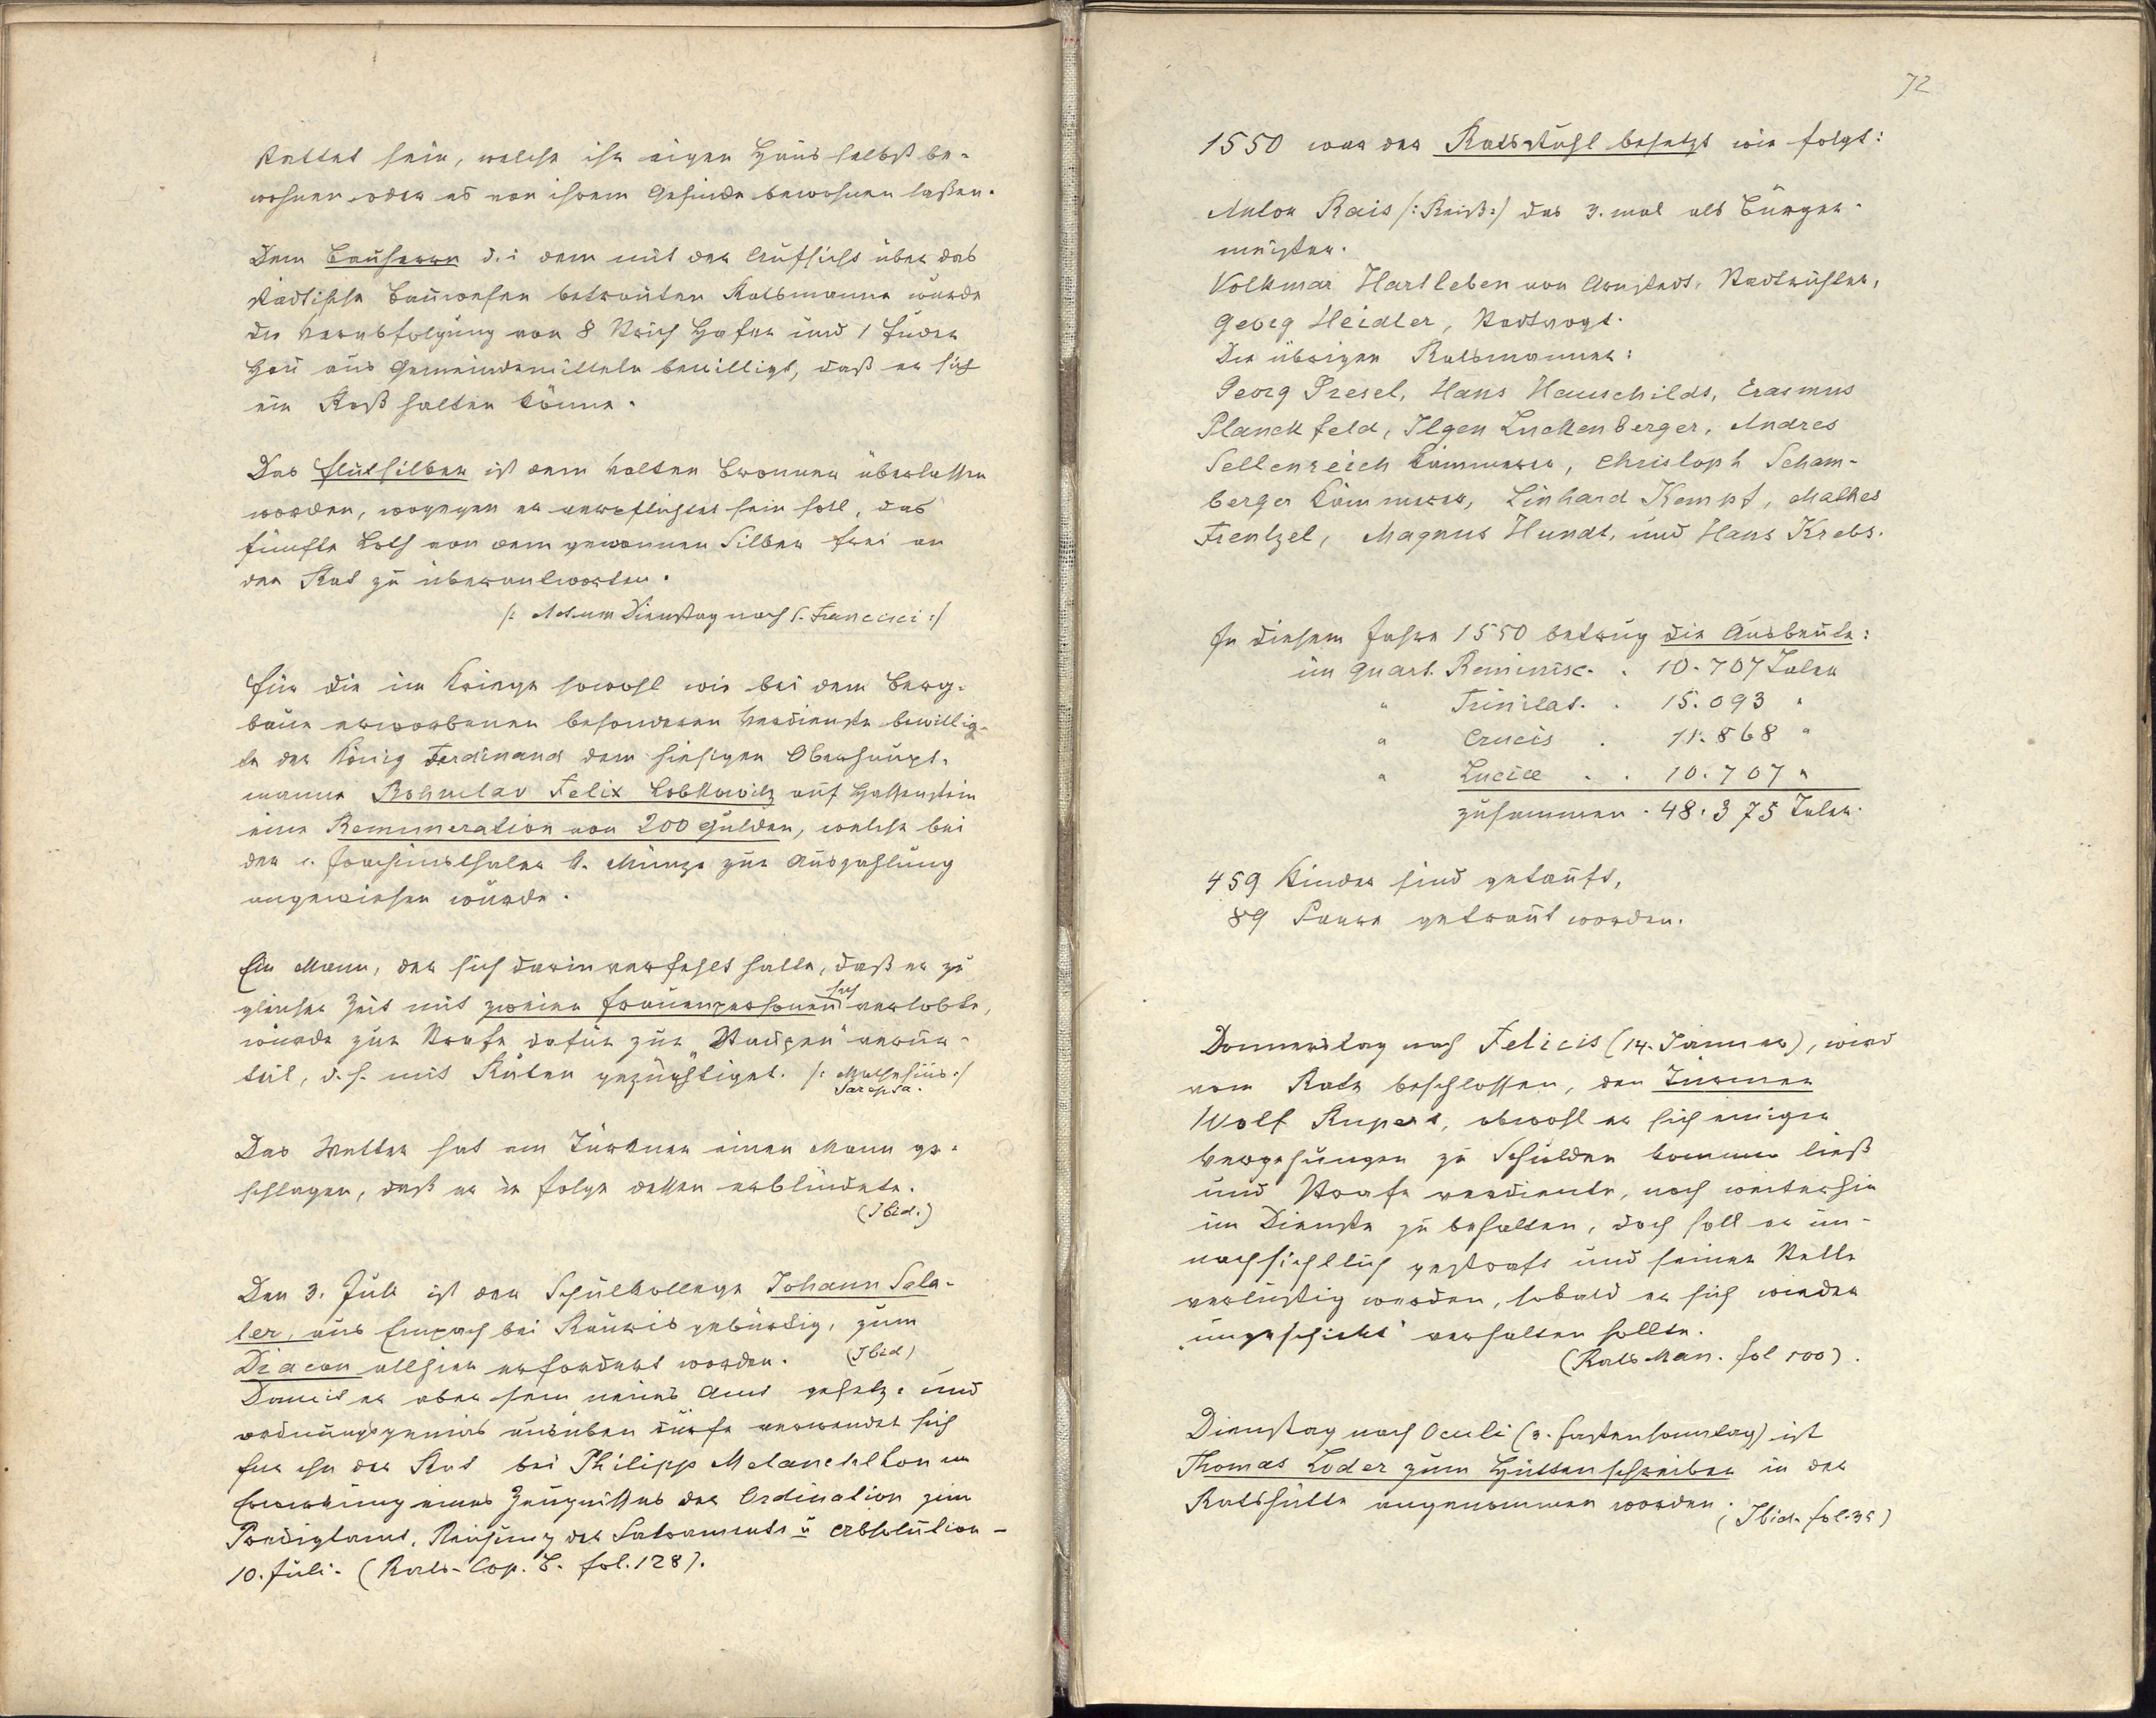 stattet sein, welche ihr eigen Haus selbst be-
wohnen oder es von ihrem Gesinde bewohnen laßen.
Dem Bauherrn d.i dem mit der Aufsicht über das
städtische Bauwesen betrauten Ratsmanne wurde
die Verabfolgung von 8 Strich Hafer und 1 Fuder
Heu aus Gemeindemitteln bewilligt, daß er sich
ein Roß halten könne.
Das Flutsilber ist dem Valten Bronner überlassen
worden, wogegen er verpflichtet sein soll, das
fünfte Loth von dem gewonnen Silber frei an
den Rat zu überantworten.
/: Actum Dienstag nach S. Francisci :/
Für die im Kriege sowohl wie bei dem Berg-
baue erworbenen besonderen Verdienste bewillig-
te der König Ferdinand dem hiesigen Oberhaupt-
manne Bohuslav Felix Lobkowitz auf Hassenstein
eine Remuneration von 200 Gulden, welche bei
der Joachimsthaler k. Münze zur Auszahlung
angewiesen wurde.
Ein Mann, der sich darin verfehlt hatte, daß er zu
gleicher Zeit mit zweien Frauenpersonen sich verlobte,
wurde zur Strafe dafür zur "Staupen" verur-
teilt, d.h. mit Ruten gezüchtiget. /: Mathesius :/
Sarepta.
Das Wetter hat am Türkner einen Mann ge-
schlagen, daß er in folge dessen erblindete.
(Ibid.)
Den 3. Juli ist der Schulkollege Johann Sala-
ler, aus Empach bei Rauris gebürtig, zum
Diacon allhier erfordert worden. (Ibid)
Damit er aber sein neues Amt gesetz- und
ordnungsgemäs ausüben dürfe verwendet sich
für ihn der Rat bei Philipp Melanchthon um
Erwirkung eines Zeugnisses der Ordination zum
Predigtamt, Reichung der Sakramente u Absolution -
10. Juli. (Rats-Cop. B. fol. 128).
72
1550 war der Ratsstuhl besetzt wie folgt:
Anton Rais /: Reiß :/ das 3. mal als Bürger-
meister.
Volkmar Hartleben von Arnstadt, Stadtrichter,
Georg Heidler, Stadtvogt.
Die übrigen Ratsmanner:
Georg Dresel, Hans Hauschilds, Erasmus
Planckfeld, Ilgen Luckenberger, Andres
Sellenreich Kämmerer, Christoph Scham-
berger Kämmerer, Linhard Kempf, Mathes
Frentzel, Magnus Hundt, und Hans Krebs.
In diesem Jahre 1550 betrug die Ausbeute:
im Quart. Reminisc. . 10.707 Taler
" Trinitat. . 15.093 "
" Crucis . 11.868 "
" Luciæ . . 10.707 "
zusammen . 48.375 Taler.
459 Kinder sind getauft,
89 Paare getraut worden.
Donnerstag nach Felicis (14. Jänner), wird
vom Rate beschlossen, den Türmer
Wolf Rupert, obwohl er sich einiger
Vergehungen zu Schulden kommen ließ
und Strafe verdiente, noch weiterhin
im Dienste zu behalten, doch soll er un-
nachsichtlich gestraft und seiner Stelle
verlustig werden, sobald er sich wieder
"ungeschickt" verhalten sollte.
(Rats Man. fol 100).
Dienstag nach Oculi (3. Fastensonntag) ist
Thomas Loder zum Hüttenschreiber in der
Ratshütte angenommen worden.
(Ibid. fol. 35)